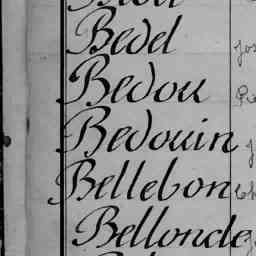 Bedel
Bedou
Bedouin
Bellebon
Bellonde